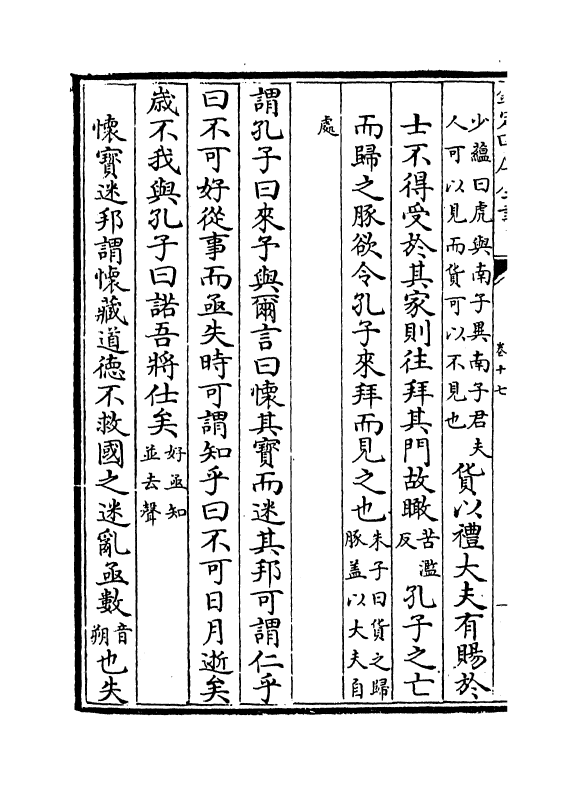 卷十七
一
少蘊曰虎與南子異南子君夫
人可以見而貨可以不見也
貨以禮大夫有賜於
士不得受於其家則往拜其門故瞰
苦濫
反
孔子之亡
而歸之豚欲令孔子來拜而見之也
朱子曰貨之歸
豚盖以大夫自
處
謂孔子曰來予與爾言曰懷其寶而迷其邦可謂仁乎
曰不可好從事而亟失時可謂知乎曰不可日月逝矣
歲不我與孔子曰諾吾將仕矣
好亟知
並去聲
懷寶迷邦謂懷藏道徳不救國之迷亂亟數
音
朔
也失